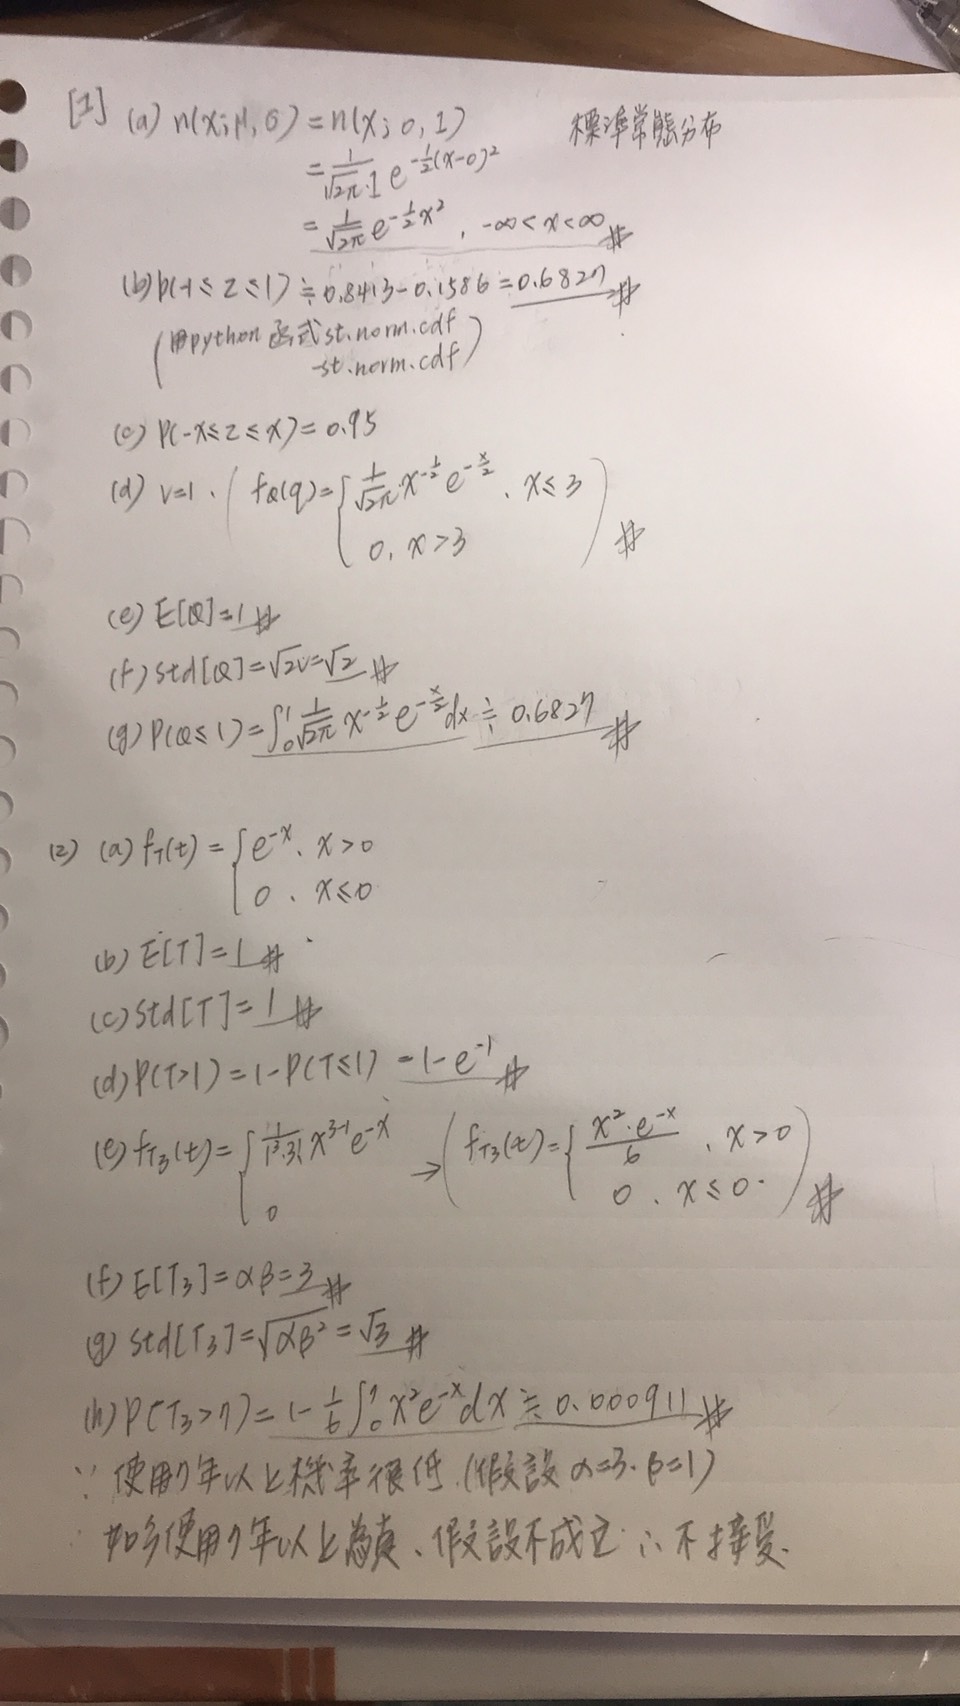 [1] (a) n(x; μ, σ) = n(x; 0, 1) 標準常態分布
= 1/(√2π·1) e^(-1/2(x-0)²)
= 1/√2π e^(-1/2 x²) , -∞ < x < ∞ #
(b) P(-1 ≤ Z ≤ 1) ≒ 0.8413 - 0.1586 = 0.6827 #
(用python 函式 st.norm.cdf
-st.norm.cdf)
(c) P(-x ≤ Z ≤ x) = 0.95
(d) v=1 . ( f_Q(q) = { 1/√2π x^(-1/2) e^(-x/2) , x ≤ 3
0 , x > 3 ) #
(e) E[Q] = 1 #
(f) std[Q] = √2v = √2 #
(g) P(Q ≤ 1) = ∫₀¹ 1/√2π x^(-1/2) e^(-x/2) dx ≒ 0.6827 #
(2) (a) f_T(t) = { e^(-x) , x > 0
0 , x ≤ 0
(b) E[T] = 1 #
(c) std[T] = 1 #
(d) P(T>1) = 1-P(T≤1) = 1-e^(-1) #
(e) f_T3(t) = { 1/(1³·3!) x^(3-1) e^(-x) → ( f_T3(t) = { x²·e^(-x)/6 , x > 0
0 0 , x ≤ 0. ) #
(f) E[T3] = αβ = 3 #
(g) std[T3] = √αβ² = √3 #
(h) P(T3 > 7) = 1 - 1/6 ∫₀⁷ x² e^(-x) dx ≒ 0.000911 #
∵ 使用7年以上機率很低 (假設 α=3. β=1)
如多使用7年以上為真、假設不成立 ∴ 不接受.